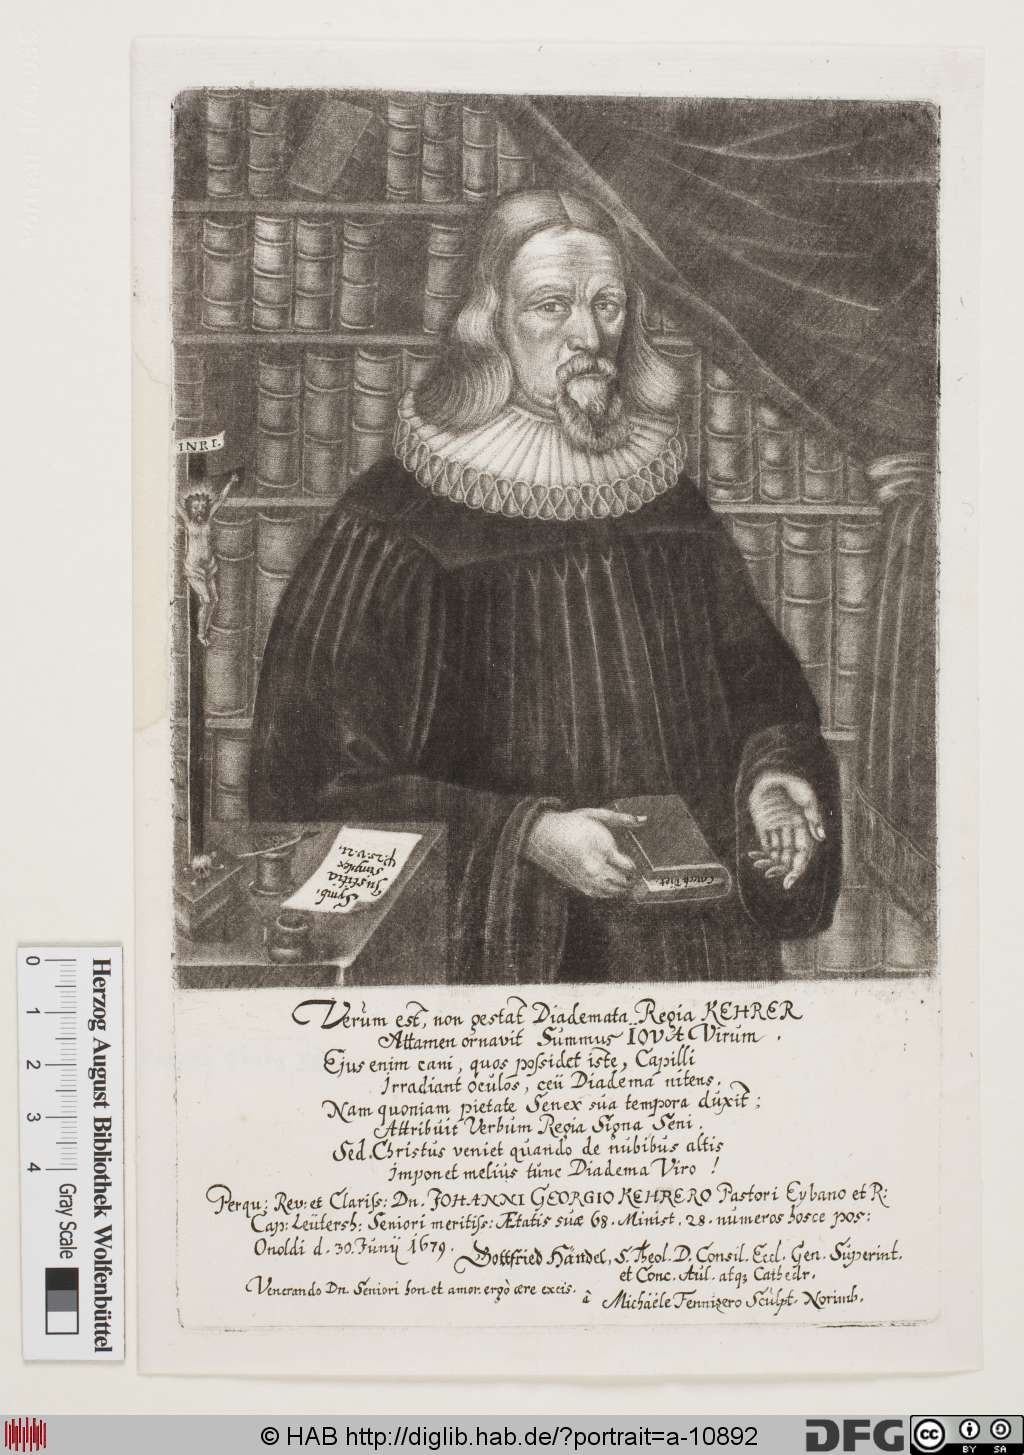 INRI.
Symb.
Justitia
simplex
ψ 25. v. 21.
Verum est, non gestat Diademata Regia KEHRER
Attamen ornavit Summus IOVA Virum.
Ejus enim cani, quos possidet iste, Capilli
Irradiant oculos, ceu Diadema nitens.
Nam quoniam pietate Senex sua tempora duxit;
Attribuit Verbum Regia Signa Seni.
Sed Christus veniet quando de nubibus altis
Imponet melius tunc Diadema Viro!
Perqu: Rev: et Clariss: Dn. JOHANNI GEORGIO KEHRERO Pastori Eybano et R:
Cap: Leütersh: Seniori meritiss: Ætatis suæ 68. Minist. 28. numeros hosce pos:
Onoldi d. 30. Junij 1679. Gottfried Händel, S. Theol. D. Consil. Eccl. Gen. Superint.
et Conc. Aul. atq; Cathedr.
Venerando Dn. Seniori hon. et amor. ergò ære excis. à Michaële Fennizero Sculpt. Norimb.
0 1 2 3 4
Gray Scale
Herzog August Bibliothek Wolfenbüttel
© HAB http://diglib.hab.de/?portrait=a-10892
DFG
cc
BY SA